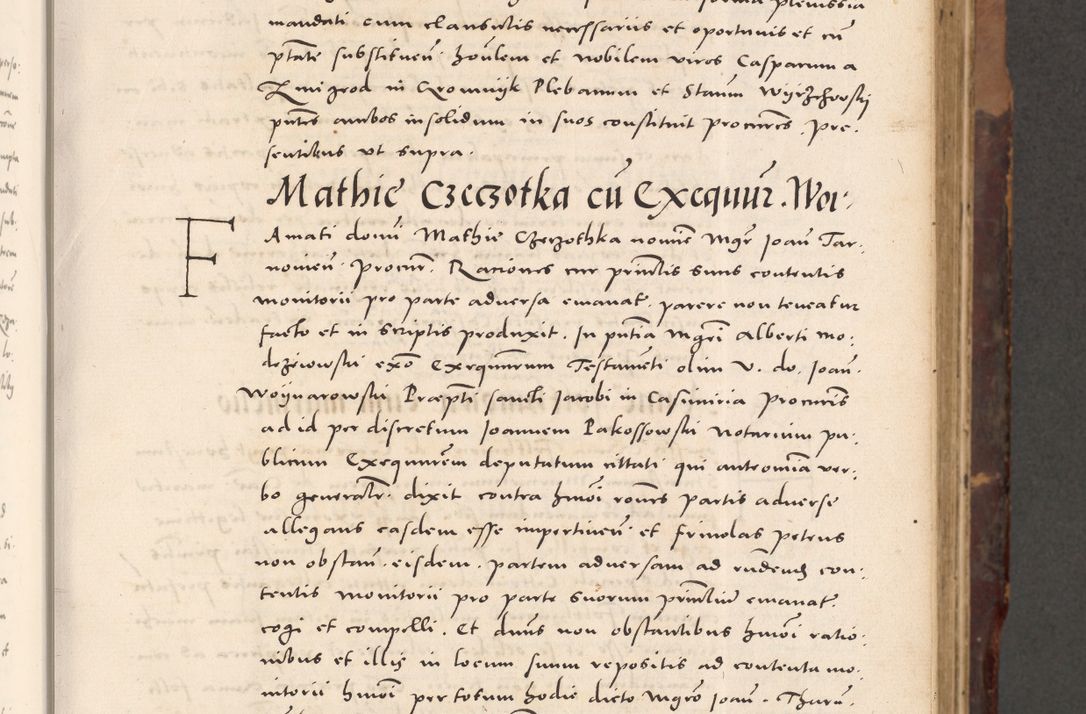 mandati cum clausulis necessariis et oportunis et cū
ptāte substituen̄. hon̄lem et nobilem viros Casparum a
Zmigrod in Cromnijk Plebanum et Stan̄um Wyrzchowskij
pn̄tes ambos insolidum in suos constituit Procures. Pre-
sentibus vt supra.
Mathie Czeczotka cū Exequūr. Woi.
Famati domī Mathie Czeczothka nomīe Mgr̄ Joan̄ Tar-
nomen̄. Procur̄. Rationes cur prin̄lis suus contentis
monitorii pro parte aduersa emanat̄. parere non teneatur
facto et in scriptis produxit. In pn̄tia Mgr̄i Alberti Mo-
drzeiowski ex̄o Exequūrum Testam̄ti olim V. do. Joan̄.
Woijnarowskij Praep̄ti sancti Jacobi in Casimiria Procur̄is
ad id per discretum Joannem Pakossowski Notarium pu-
blicum Exequūrem deputatum cittati qui ante om̄ia ver-
bo generalr̄. dixit contra hm̄oi ron̄es partis aduerse
allegans easdem esse impertinen̄. et friuolas petens
non obstan̄. eisdem. partem aduersam ad rn̄dend̄ con-
tentis monitorii pro parte suorum prin̄liū emanat̄.
cogi et compelli. Et dn̄us non obstantibus hm̄oi ratio-
nibus et illis in locum suum repositis ad contenta mo-
nitorii hm̄oi per totum hodie dicto Mgr̄o Joan̄. Tharn̄.